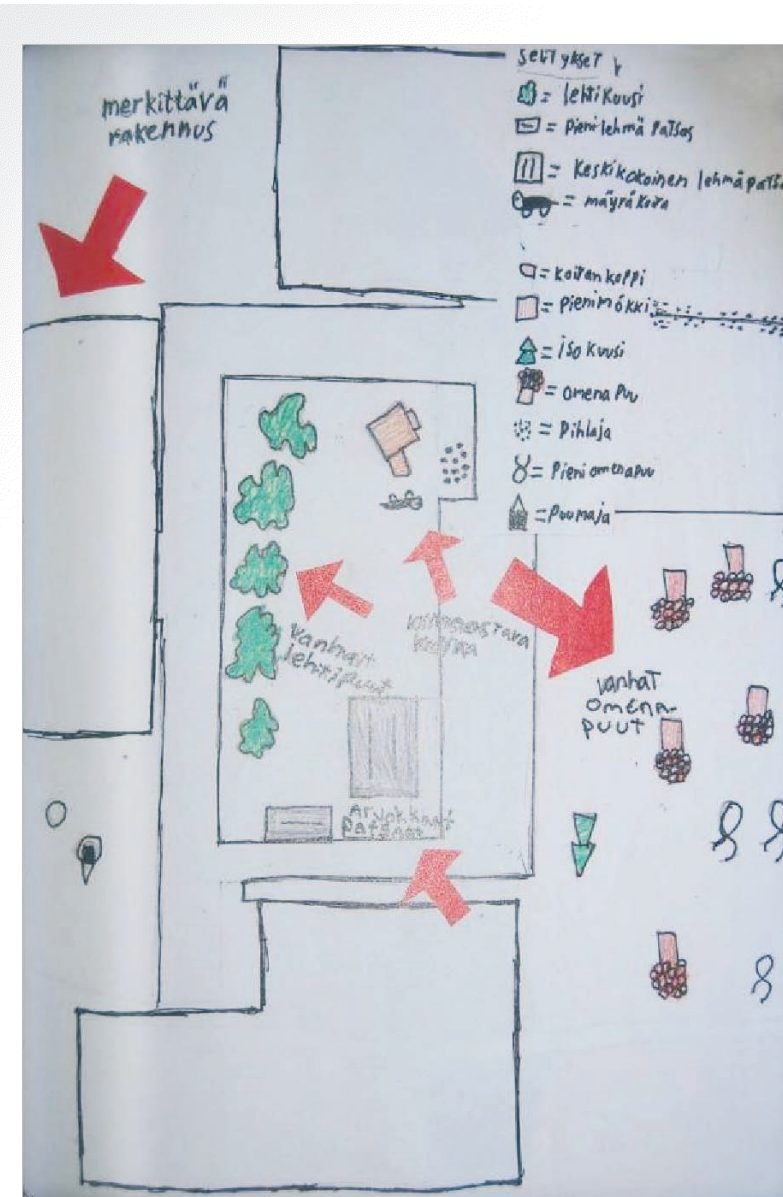 merkittävä
rakennus
selitykset
= lehtikuusi
= Pieni lehmä Patsas
= Keskikokoinen lehmäpatsa
= mäyräkoira
= koirankoppi
= Pienimökki
= iso kuusi
= omena Puu
= Pihlaja
= Pieni omenapuu
= Puumaja
vanhat
lehtipuut
koira
vanhat
omena-
puut
Arvokkaat
Patsaat